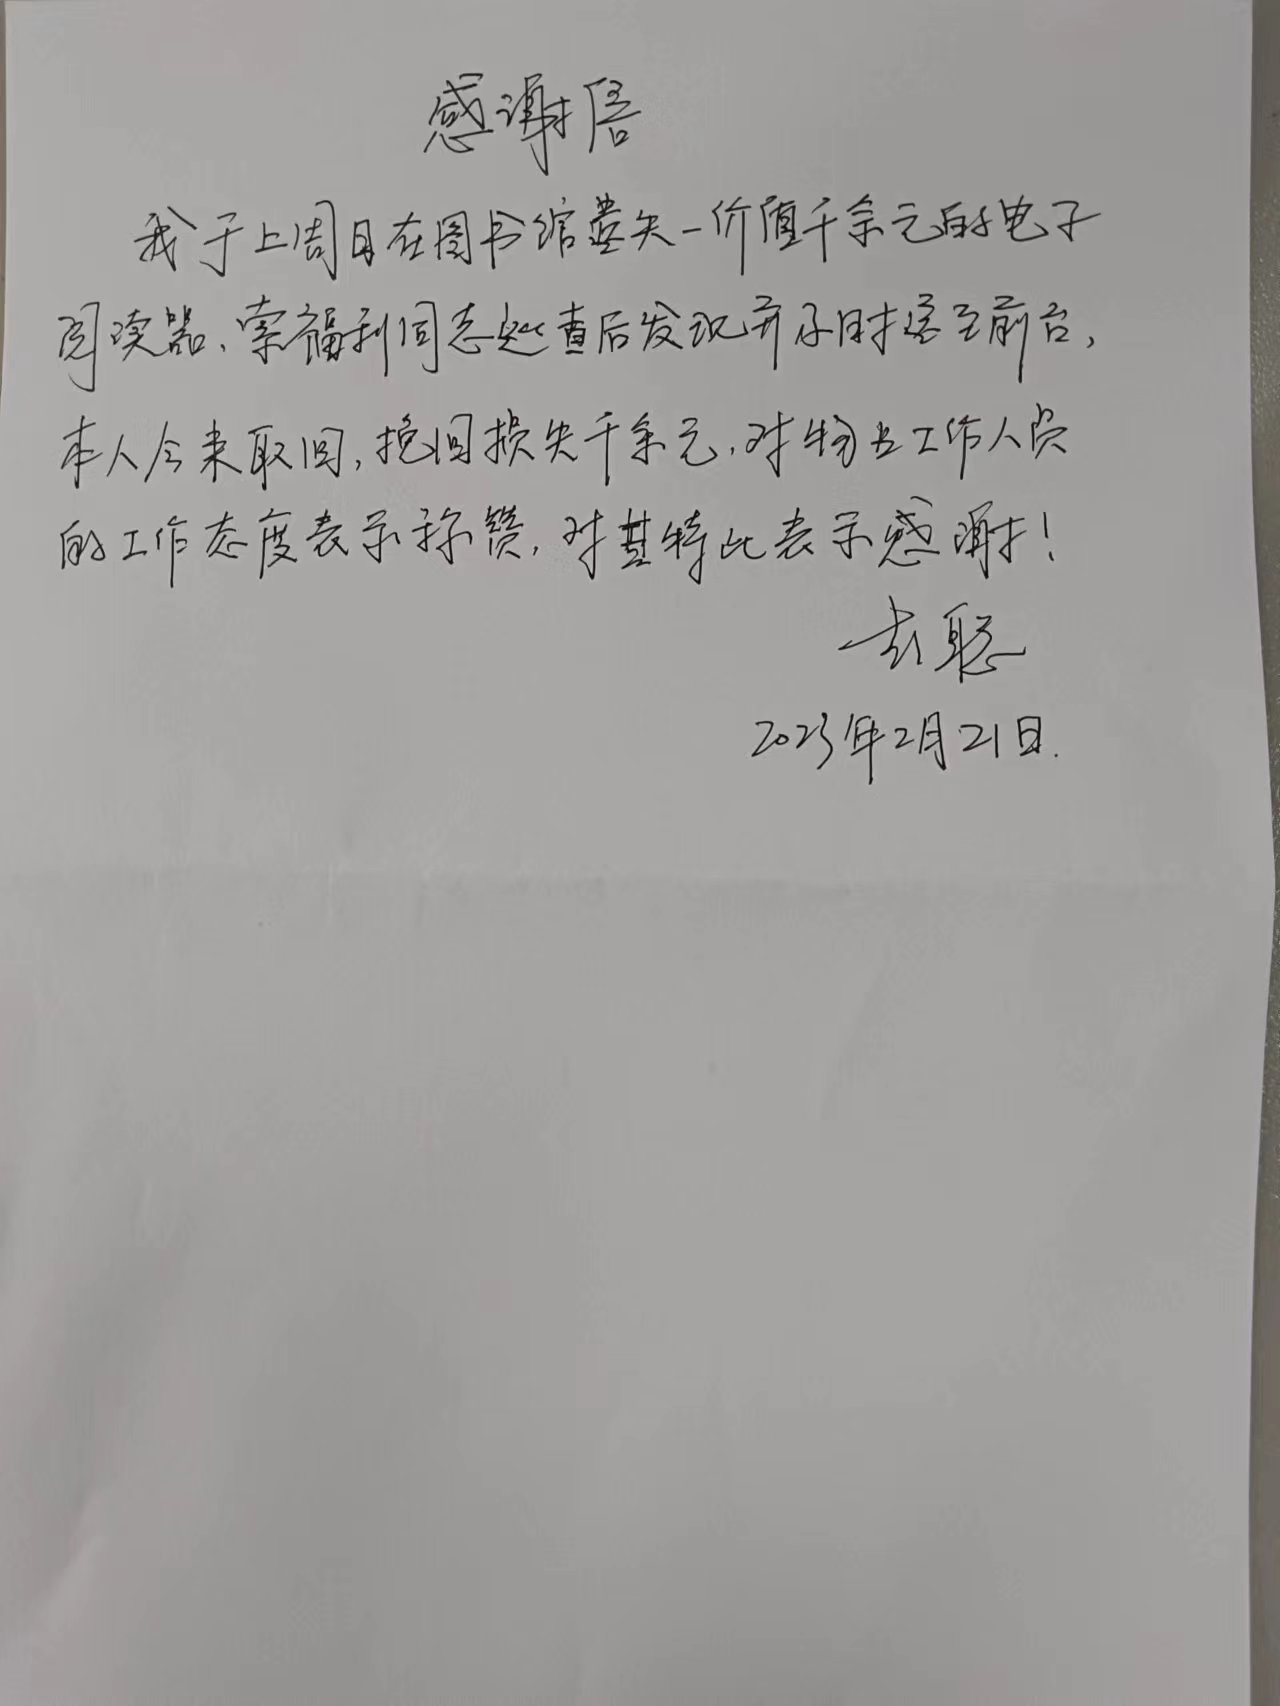 感谢信
我于上周日在图书馆丢失一价值千余元的电子
阅读器、索福利同志巡查后发现并及时送至前台,
本人今来取回,挽回损失千余元,对物业工作人员
的工作态度表示称赞,对其特此表示感谢!
聪
2023年2月21日.